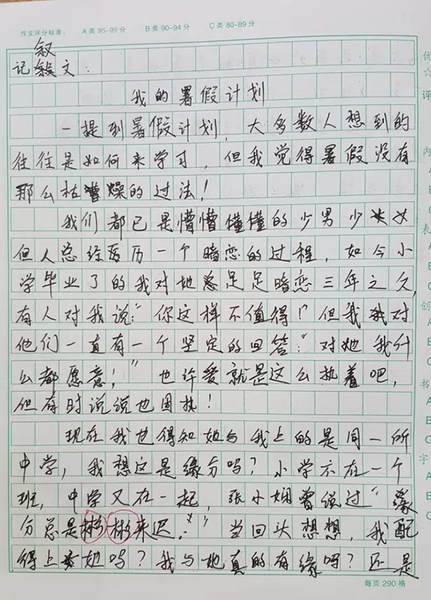 作文评分标准: A类 95-99分 B类 90-94分 C类 80-89分
叙
记文:
我的暑假计划
一提到暑假计划,大多数人想到的
往往是如何来学习,但我觉得暑假没有
那么枯燥的过法!
我们都已是懵懵懂懂的少男少女
但人总经历一个暗恋的过程,如今小
学毕业了的我对她足足暗恋三年之久,
有人对我说:"你这样不值得!"但我对
他们一直有一个坚定的回答:"对她我什
么都愿意!"也许爱就是这么执着吧,
但有时说说也困执!
现在我也得知她与我上的是同一所
中学,我想这是缘分吗?小学不在一个
班,中学又在一起,张小娴曾经过"缘
分总是彬彬来迟。"当回头想想,我配
得上她吗?我与她真的有缘吗?还是
每页 290 格
优
☆
评
内
表
创
书
字